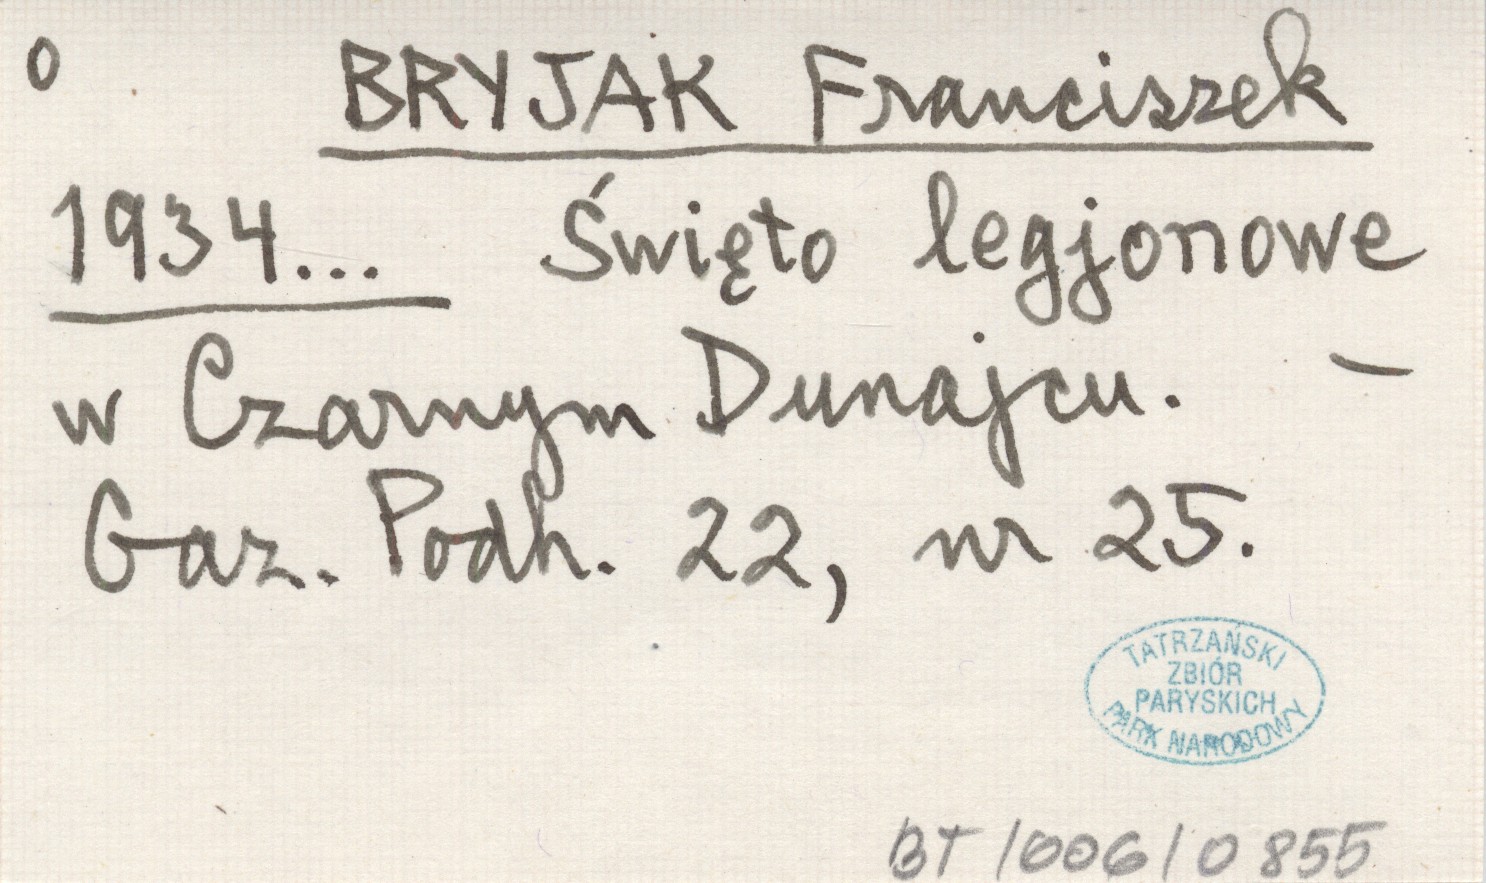 o BRYJAK Franciszek
1934... Święto legjonowe
w Czarnym Dunajcu. –
Gaz. Podh. 22, nr 25.
TATRZAŃSKI
ZBIÓR
PARYSKICH
PARK NARODOWY
BT/006/0855